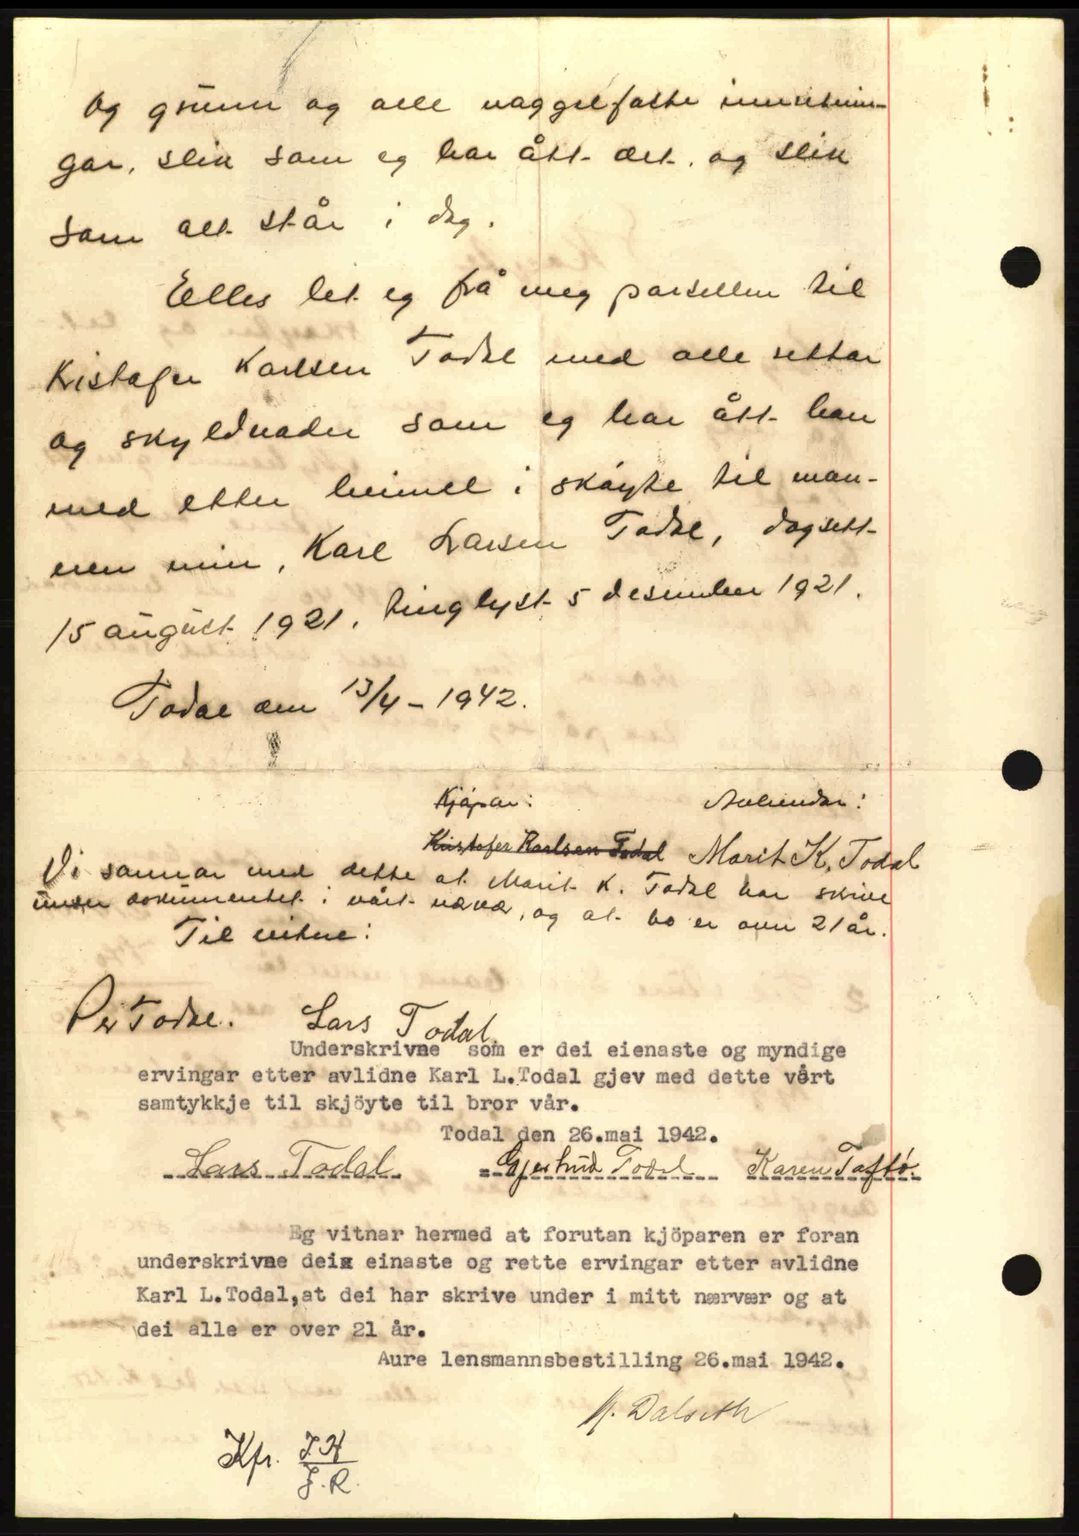 og grunn og alle naggelfaste innretnin-
gar, slik som eg har ått det, og slik
som alt står i dag.
Elles let eg frå meg parsellen til
Kristofer Karlsen Todal med alle rettar
og skyldnader som eg har ått han
med etter heimel i skøyte til man-
nen min, Karl Larsen Todal, dagsett
15 august 1921, tinglyst 5 desember 1921.
Todal den 13/4 - 1942.
Kjøpar: Avhendar:
Kristofer Karlsen Todal Marit K. Todal
Vi sannar med dette at Marit K. Todal har skrive
under dokumentet i vårt nærvær, og at ho er over 21 år.
Til vitne:
Per Todal. Lars Todal
Underskrivne som er dei eienaste og myndige
ervingar etter avlidne Karl L.Todal gjev med dette vårt
samtykkje til skjöyte til bror vår.
Todal den 26.mai 1942.
Lars Todal Gjertrud Todal Karen Taftø.
Eg vitnar hermed at forutan kjöparen er foran
underskrivne dei einaste og rette ervingar etter avlidne
Karl L.Todal,at dei har skrive under i mitt nærvær og at
dei alle er over 21 år.
Aure lensmannsbestilling 26.mai 1942.
M. Dalseth
Kfr. J.H
J.R.